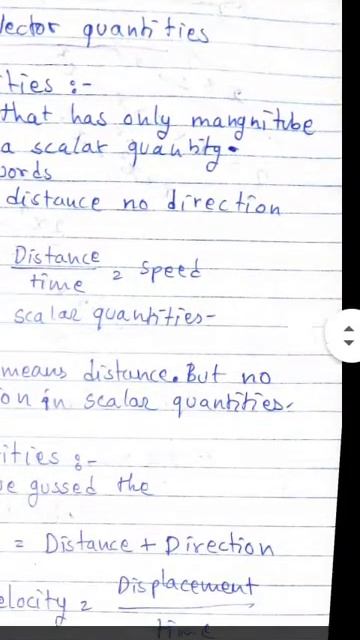 lector quantities
ties :-
that has only mangnitube
a scalar quantity.
words
distance no direction
Distance
time = speed
scalar quantities-
means distance. But no
on in scalar quantities.
ities :-
be gussed the
= Distance + Direction
elocity = Displacement
time